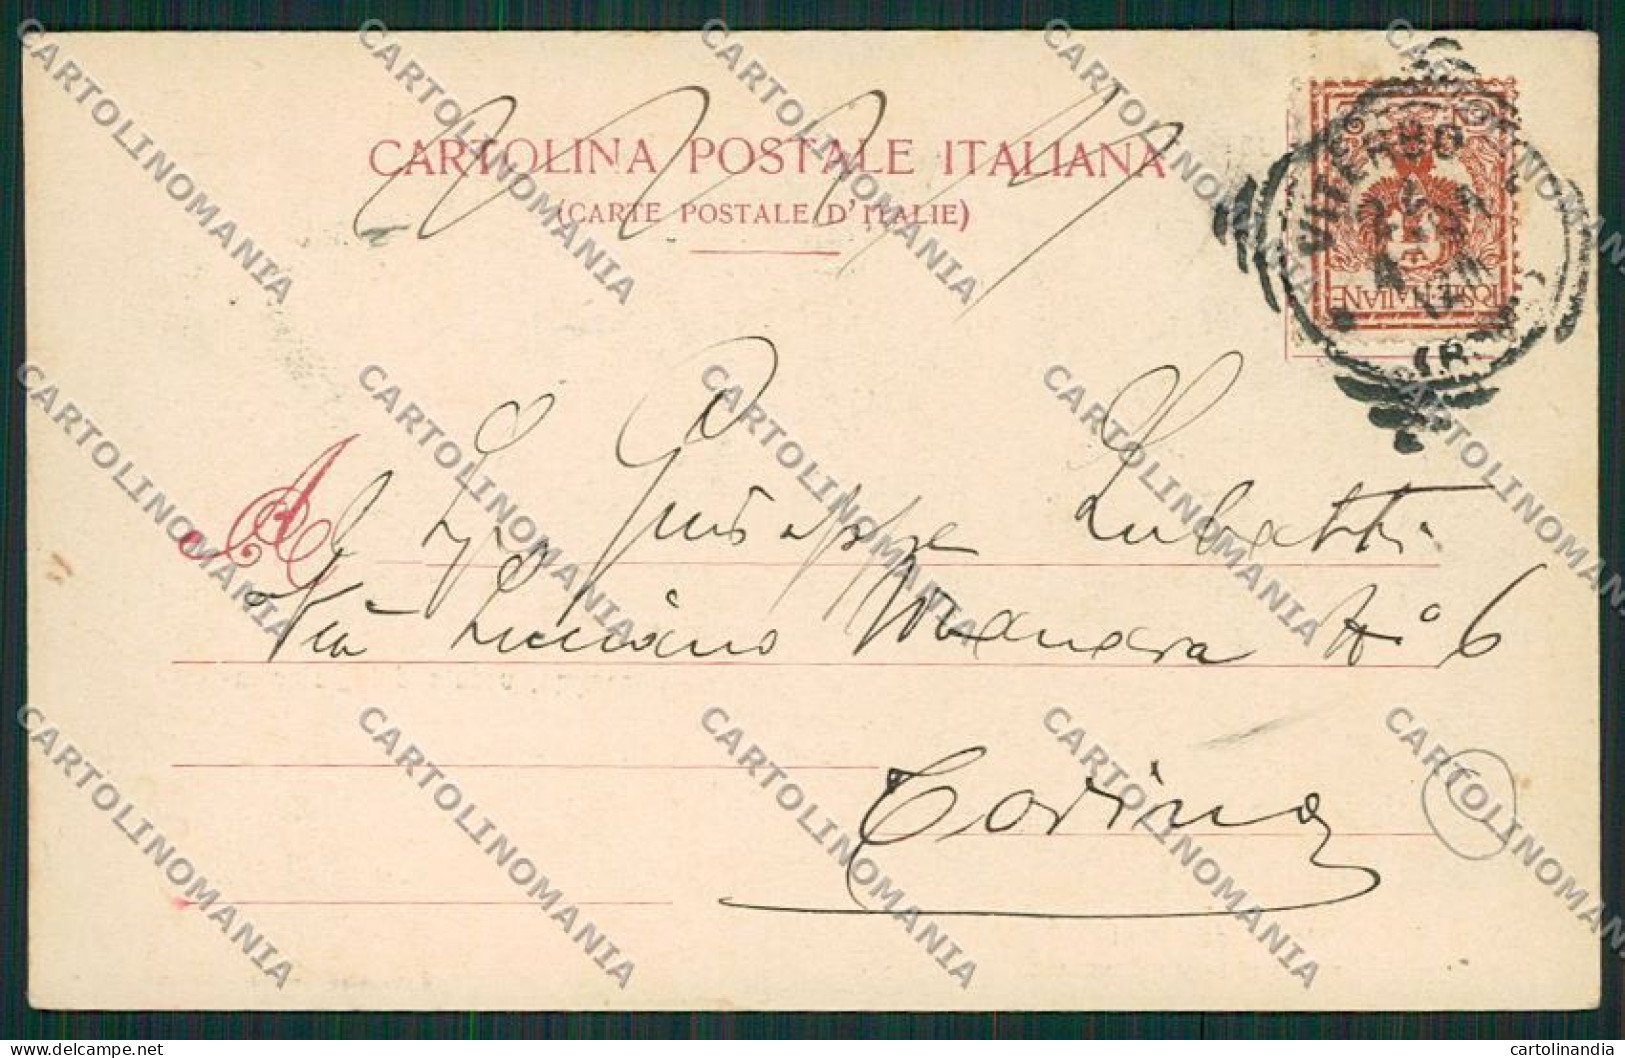 CARTOLINA POSTALE ITALIANA
(CARTE POSTALE D'ITALIE)
VITERBO
(ROMA)
POSTE ITALIANE
A
Sig Giuseppe Lubatti
Via Luciano Manara N° 6
Torino
CARTOLINOMANIA
delcampe.net
cartolinandia